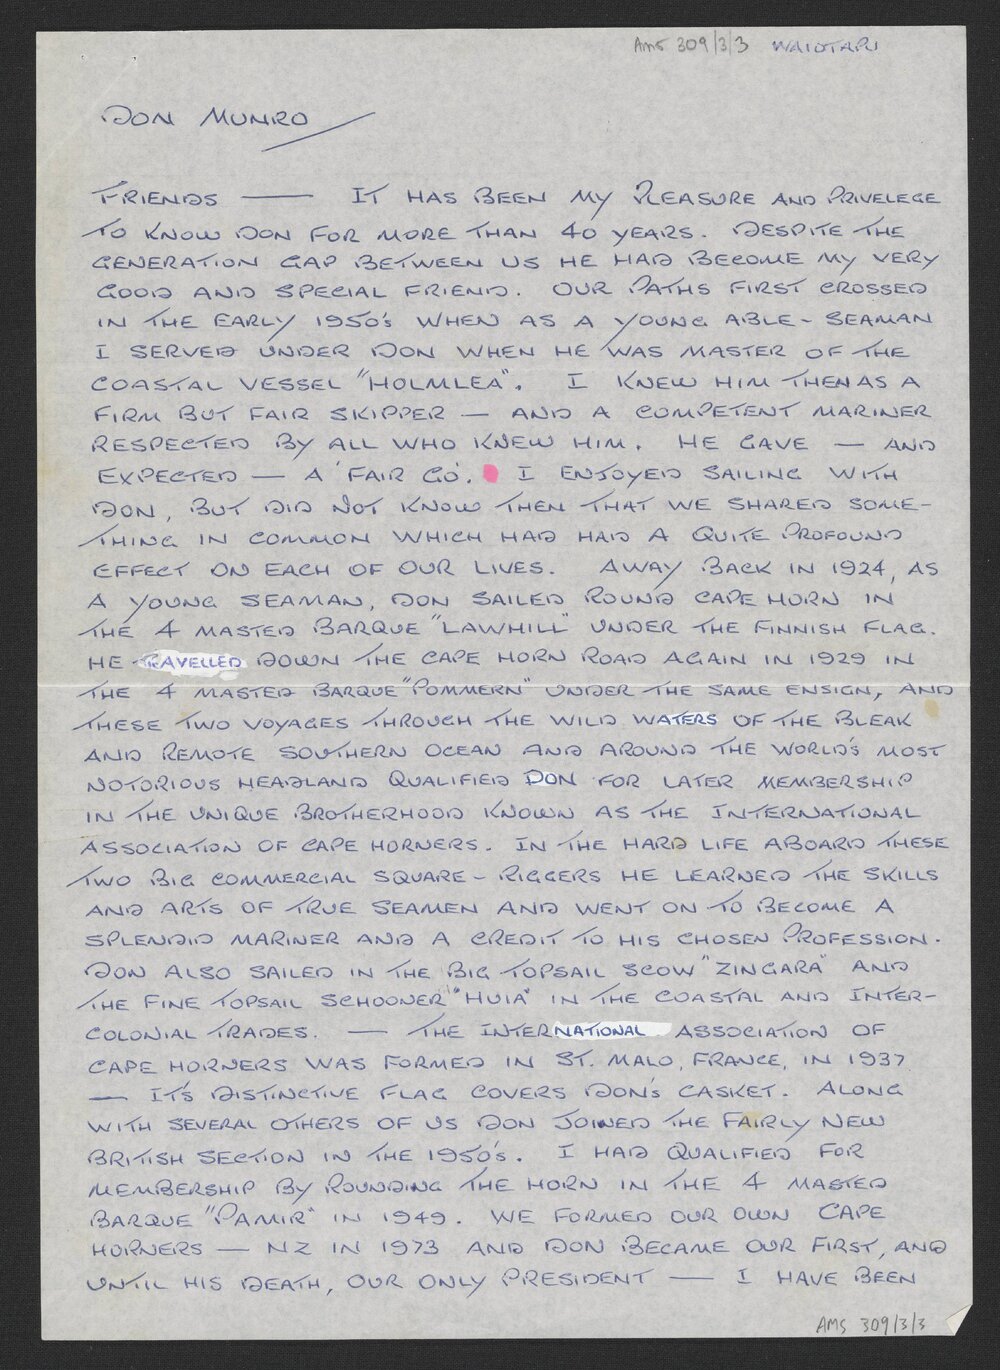 AMS 309/3/3 WAIOTAPU
DON MUNRO
FRIENDS — IT HAS BEEN MY PLEASURE AND PRIVELEGE
TO KNOW DON FOR MORE THAN 40 YEARS. DESPITE THE
GENERATION GAP BETWEEN US HE HAD BECOME MY VERY
GOOD AND SPECIAL FRIEND. OUR PATHS FIRST CROSSED
IN THE EARLY 1950's WHEN AS A YOUNG ABLE-SEAMAN
I SERVED UNDER DON WHEN HE WAS MASTER OF THE
COASTAL VESSEL "HOLMLEA". I KNEW HIM THEN AS A
FIRM BUT FAIR SKIPPER — AND A COMPETENT MARINER
RESPECTED BY ALL WHO KNEW HIM. HE GAVE — AND
EXPECTED — A 'FAIR GO'. I ENJOYED SAILING WITH
DON, BUT DID NOT KNOW THEN THAT WE SHARED SOME-
THING IN COMMON WHICH HAD HAD A QUITE PROFOUND
EFFECT ON EACH OF OUR LIVES. AWAY BACK IN 1924, AS
A YOUNG SEAMAN, DON SAILED ROUND CAPE HORN IN
THE 4 MASTED BARQUE "LAWHILL" UNDER THE FINNISH FLAG.
HE TRAVELLED DOWN THE CAPE HORN ROAD AGAIN IN 1929 IN
THE 4 MASTED BARQUE "POMMERN" UNDER THE SAME ENSIGN, AND
THESE TWO VOYAGES THROUGH THE WILD WATERS OF THE BLEAK
AND REMOTE SOUTHERN OCEAN AND AROUND THE WORLD'S MOST
NOTORIOUS HEADLAND QUALIFIED DON FOR LATER MEMBERSHIP
IN THE UNIQUE BROTHERHOOD KNOWN AS THE INTERNATIONAL
ASSOCIATION OF CAPE HORNERS. IN THE HARD LIFE ABOARD THESE
TWO BIG COMMERCIAL SQUARE-RIGGERS HE LEARNED THE SKILLS
AND ARTS OF TRUE SEAMEN AND WENT ON TO BECOME A
SPLENDID MARINER AND A CREDIT TO HIS CHOSEN PROFESSION.
DON ALSO SAILED IN THE BIG TOPSAIL SCOW "ZINGARA" AND
THE FINE TOPSAIL SCHOONER "HUIA" IN THE COASTAL AND INTER-
COLONIAL TRADES. — THE INTERNATIONAL ASSOCIATION OF
CAPE HORNERS WAS FORMED IN ST. MALO, FRANCE, IN 1937
— IT'S DISTINCTIVE FLAG COVERS DON'S CASKET. ALONG
WITH SEVERAL OTHERS OF US DON JOINED THE FAIRLY NEW
BRITISH SECTION IN THE 1950's. I HAD QUALIFIED FOR
MEMBERSHIP BY ROUNDING THE HORN IN THE 4 MASTED
BARQUE "PAMIR" IN 1949. WE FORMED OUR OWN CAPE
HORNERS — NZ IN 1973 AND DON BECAME OUR FIRST, AND
UNTIL HIS DEATH, OUR ONLY PRESIDENT — I HAVE BEEN
AMS 309/3/3